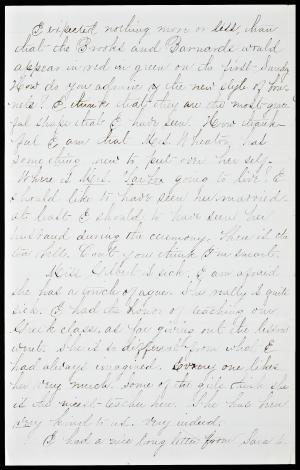 I expected nothing more or less, than
that the Brooks and Barnards would
appear in red or green on the first Sunday
How do you advance of the new style of bon-
nets? I think that they are the most grace
ful shape that I have seen. How thank-
ful I am that Mrs. Wheaton has
something new to put over her self.
Where is Mrs. going to live? I
should like to have seen her married
at least I should to have seen her
husband during the ceremony. There is
two bills. Don't you think I'm smart.
Miss Gilbert is sick. I am afraid
she has a touch of ague. She really is quite
sick. I had the honor of teaching our
Greek class, as far giving out the lesson
went. She is so different from what I
had always imagined. Every one likes
her very much. some of the girls think she
is the nicest teacher here. She has been
very kind to us. very indeed.
I had a nice long letter from Sara